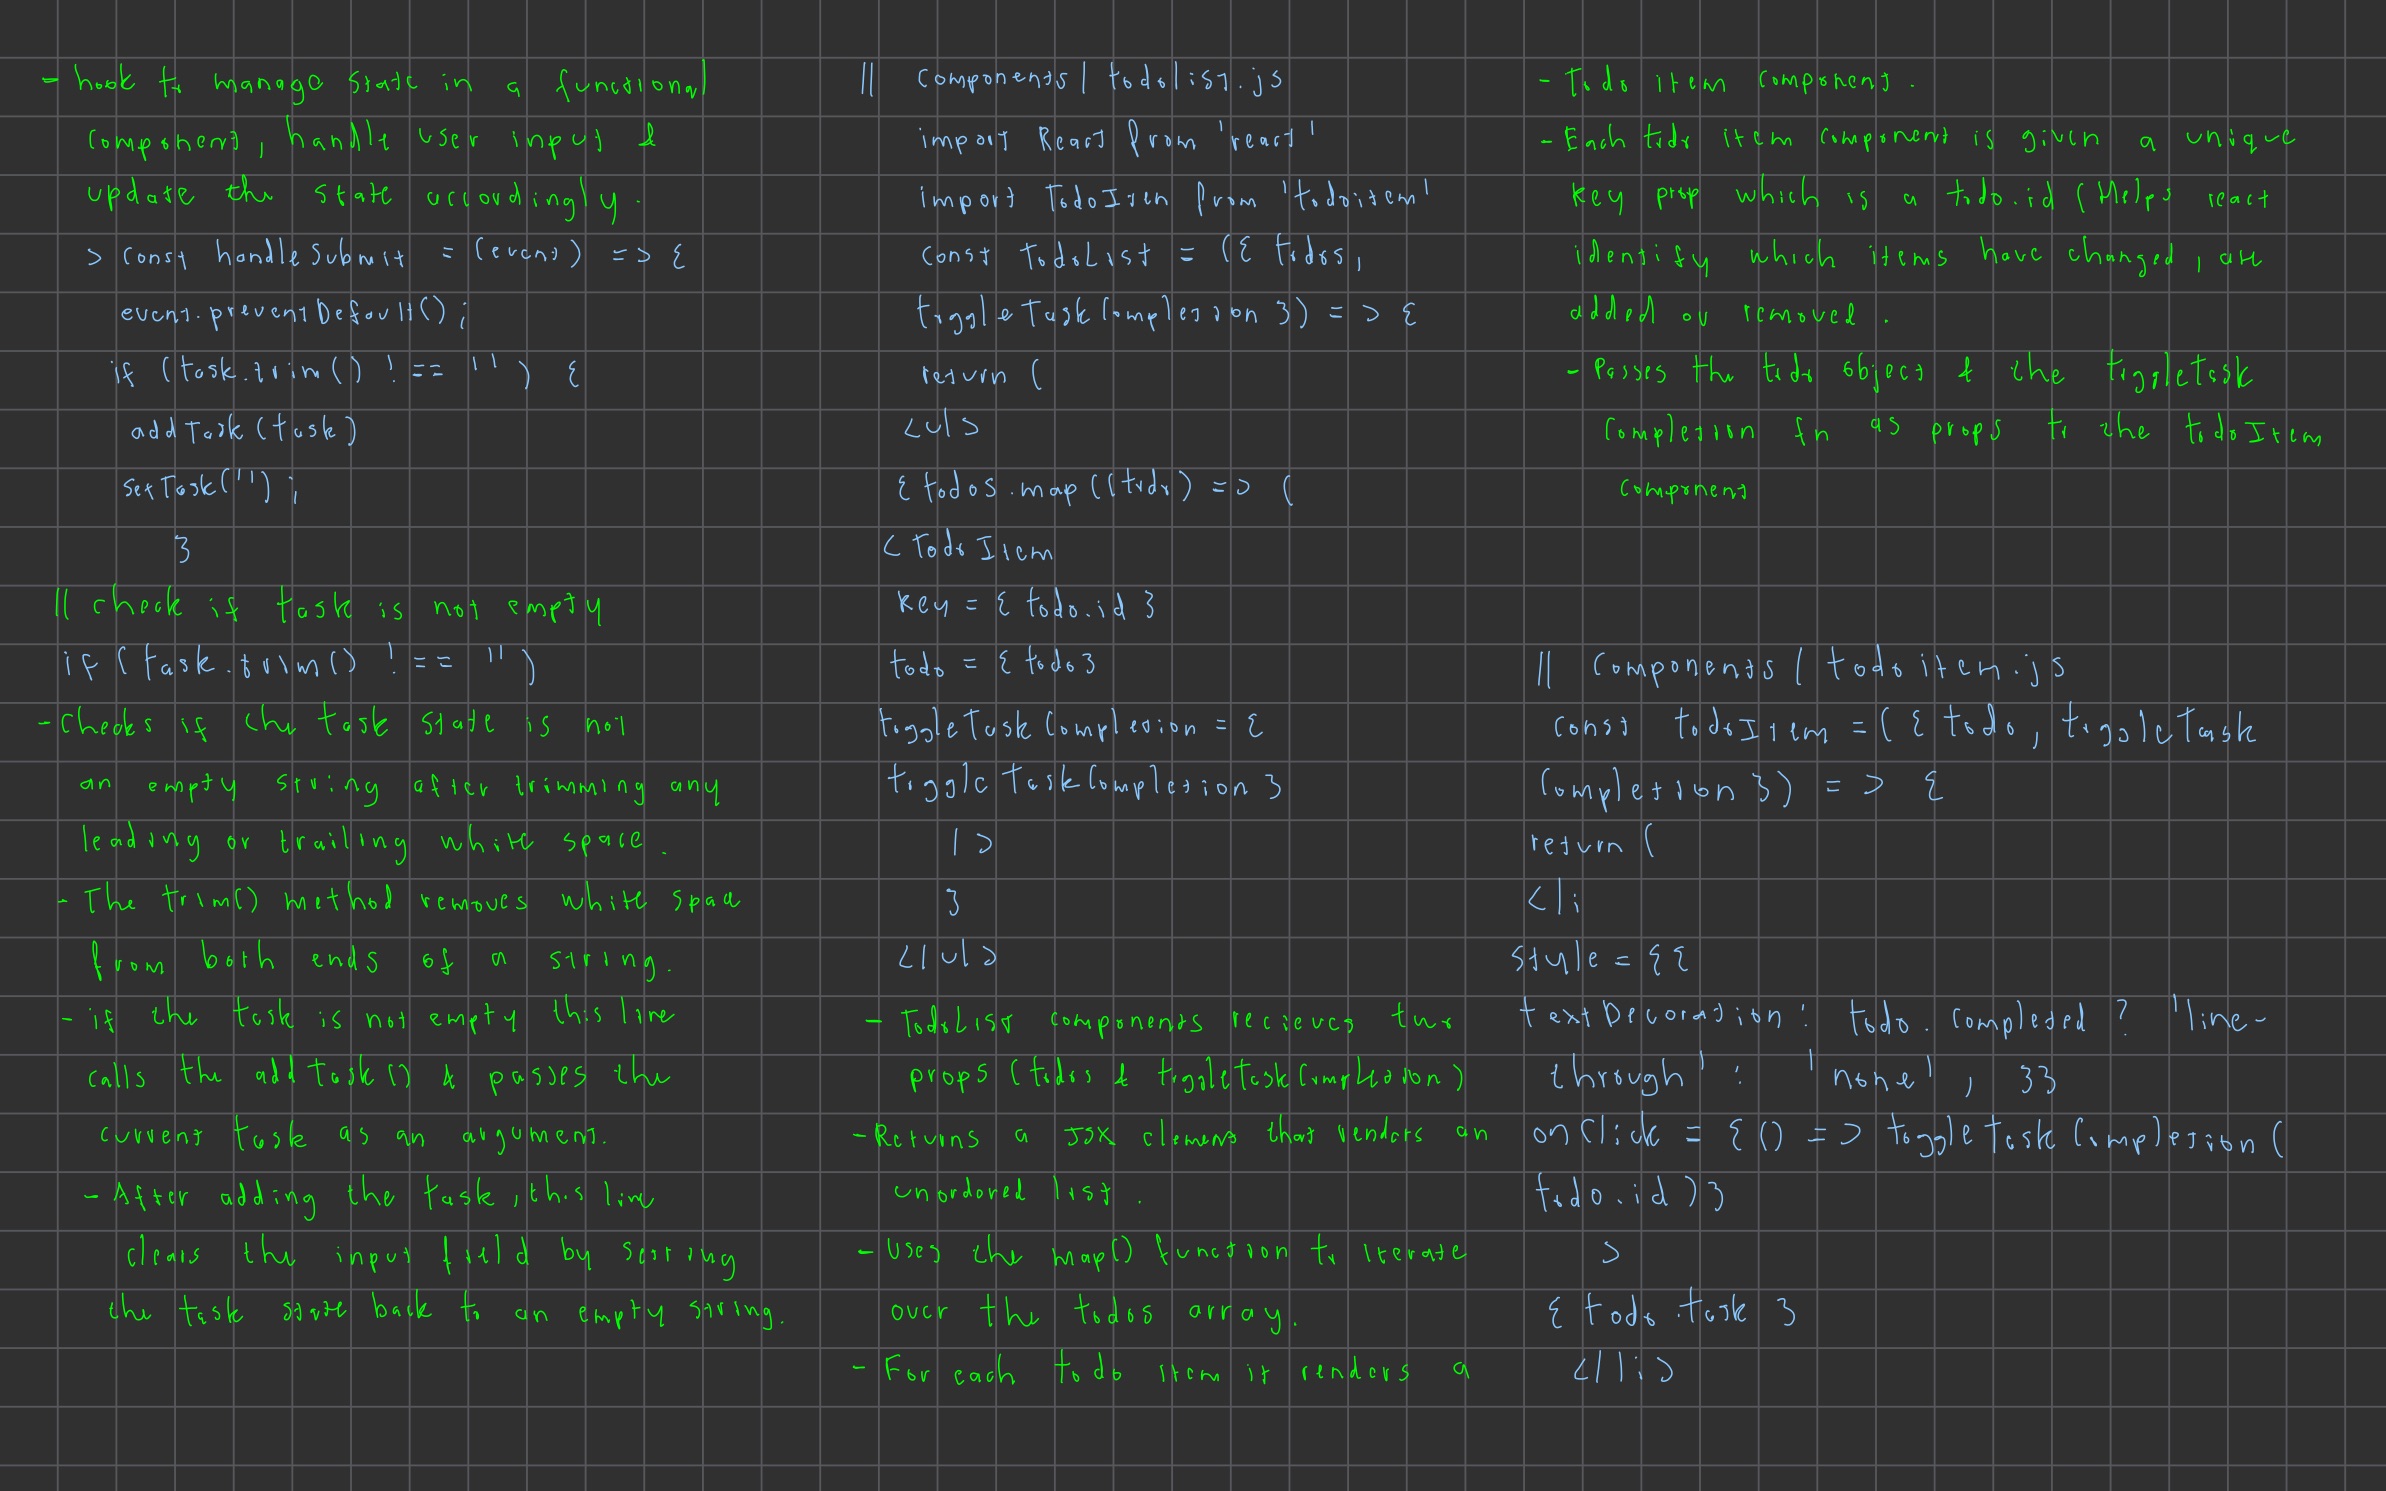 - hook to manage state in a functional
component, handle user input &
update the state accordingly.
> const handleSubmit = (event) => {
event.preventDefault();
if (task.trim() !== '') {
addTask(task)
setTask('');
}
|| check if task is not empty
if (task.trim() !== '')
- Checks if the task state is not
an empty string after trimming any
leading or trailing white space.
- The trim() method removes white space
from both ends of a string.
- if the task is not empty this line
calls the addTask() & passes the
current task as an argument.
- After adding the task, this line
clears the input field by setting
the task state back to an empty string.
|| components/todolist.js
import React from 'react'
import TodoItem from 'todoitem'
const TodoList = ({ todos,
toggleTaskCompletion }) => {
return (
<ul>
{ todos.map((todo) => (
<TodoItem
key = { todo.id }
todo = { todo }
toggleTaskCompletion = {
toggleTaskCompletion }
/>
}
</ul>
- TodoList components recieves two
props (todos & toggleTaskCompletion)
- Returns a JSX element that renders an
unordered list.
- Uses the map() function to iterate
over the todos array.
- For each todo item it renders a
- Todo item component.
- Each todo item component is given a unique
key prop which is a todo.id (Helps react
identify which items have changed, are
added or removed.
- Passes the todo object & the toggleTask
Completion fn as props to the todoItem
component
|| Components / todoitem.js
const todoItem = ({ todo, toggleTask
Completion }) => {
return (
<li
style = {{
textDecoration: todo.completed ? 'line-
through' : 'none', }}
onClick = {() => toggleTaskCompletion(
todo.id)}
>
{ todo.task }
</li>